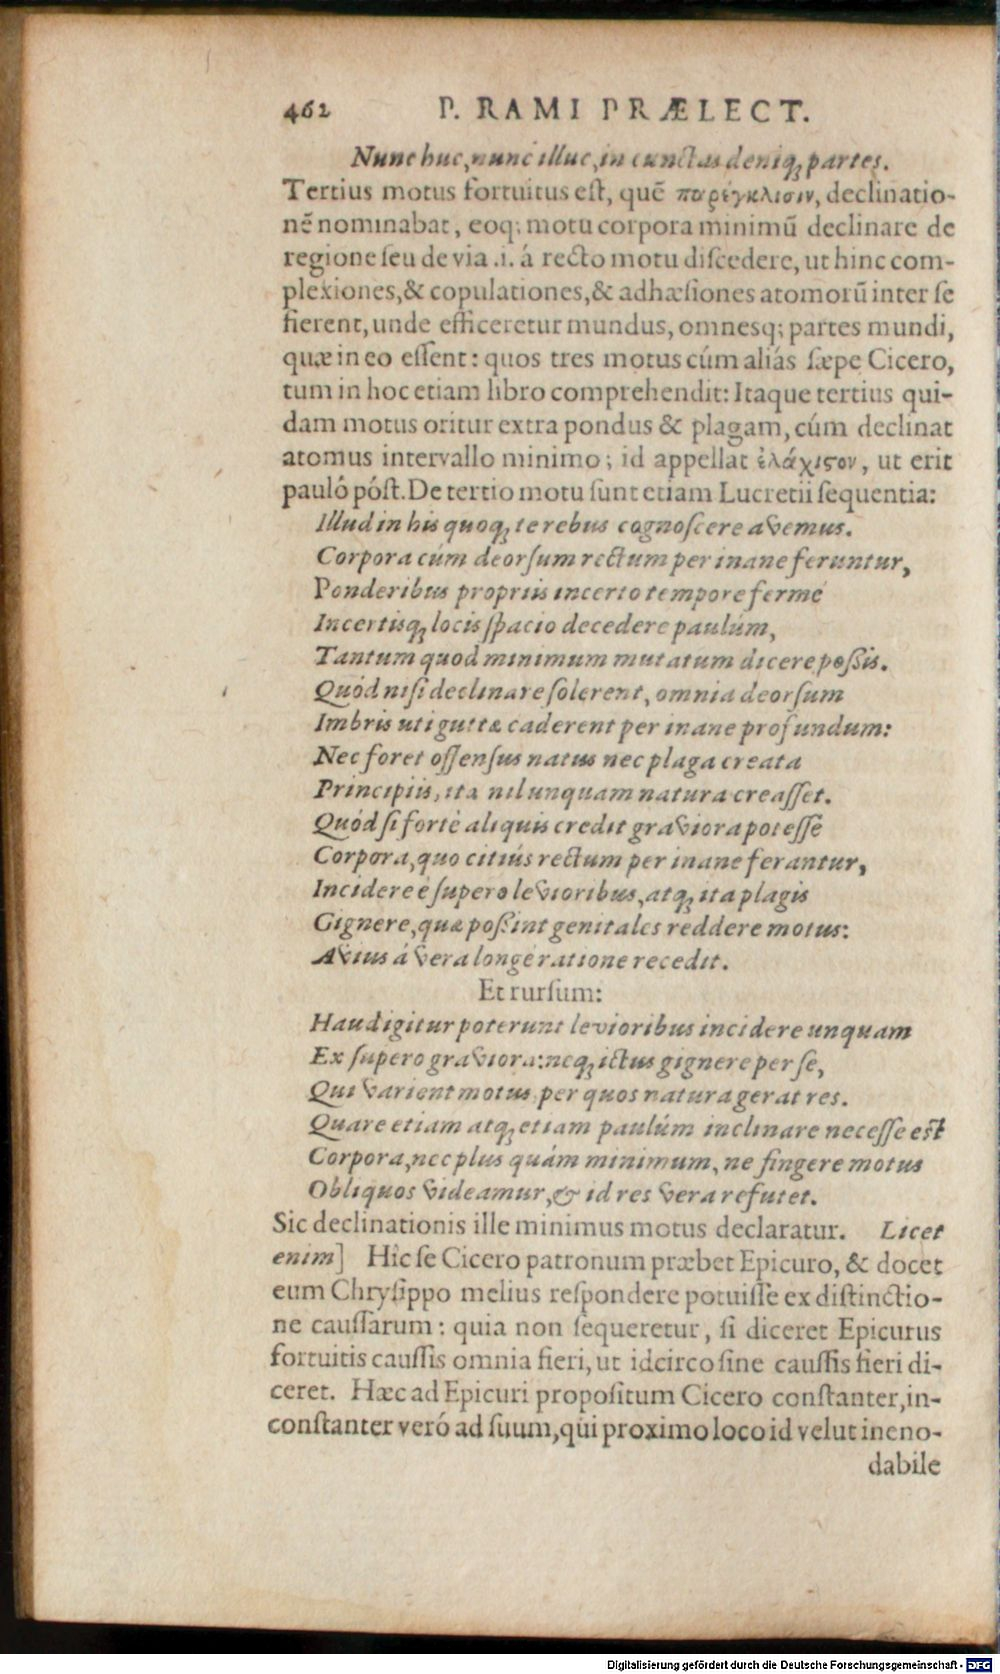 462 P. RAMI PRÆLECT.
Nunc huc, nunc illuc, in cunctas deniq; partes.
Tertius motus fortuitus est, quẽ παρέγκλισιν, declinatio-
nẽ nominabat, eoq; motu corpora minimũ declinare de
regione seu de via .i. á recto motu discedere, ut hinc com-
plexiones, & copulationes, & adhæsiones atomorũ inter se
fierent, unde efficeretur mundus, omnesq; partes mundi,
quæ in eo essent: quos tres motus cúm aliás sæpe Cicero,
tum in hoc etiam libro comprehendit: Itaque tertius qui-
dam motus oritur extra pondus & plagam, cúm declinat
atomus intervallo minimo; id appellat ἐλάχιϛον, ut erit
paulô póst. De tertio motu sunt etiam Lucretii sequentia:
Illud in his quoq; te rebus cognoscere avemus.
Corpora cúm deorsum rectum per inane feruntur,
Ponderibus propriis incerto tempore fermé
Incertisq; locis spacio decedere paulúm,
Tantum quod minimum mutatum dicere possis.
Quód nisi declinare solerent, omnia deorsum
Imbris uti guttæ caderent per inane profundum:
Nec foret offensus natus nec plaga creata
Principiis, ita nil unquam natura creasset.
Quód si forté aliquis credit graviora potesse
Corpora, quo citiús rectum per inane ferantur,
Incidere é supero levioribus, atq; ita plagis
Gignere, quæ possint genitales reddere motus:
Avius á vera longé ratione recedit.
Et rursum:
Haud igitur poterunt levioribus incidere unquam
Ex supero graviora: neq; ictus gignere per se,
Qui varient motus per quos natura gerat res.
Quare etiam atq; etiam paulúm inclinare necesse est
Corpora, nec plus quám minimum, ne fingere motus
Obliquos videamur, & id res vera refutet.
Sic declinationis ille minimus motus declaratur. Licet
enim] Hîc se Cicero patronum præbet Epicuro, & docet
eum Chrysippo melius respondere potuisse ex distinctio-
ne caussarum: quia non sequeretur, si diceret Epicurus
fortuitis caussis omnia fieri, ut idcirco sine caussis fieri di-
ceret. Hæc ad Epicuri propositum Cicero constanter, in-
constanter veró ad suum, qui proximo loco id velut ineno-
dabile
Digitalisierung gefördert durch die Deutsche Forschungsgemeinschaft - DFG